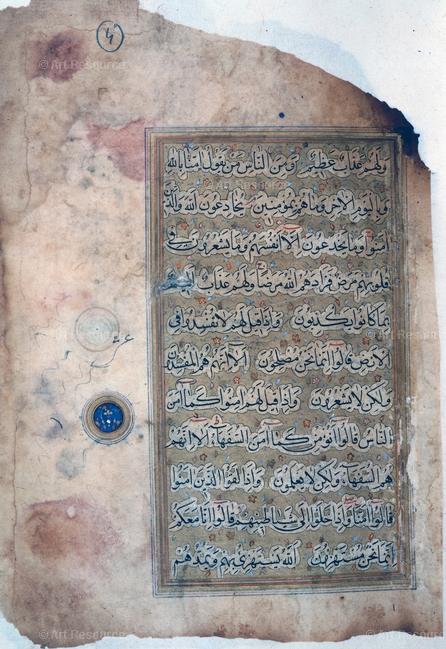 ولهم عذاب عظيم ومن الناس من يقول امنا بالله
وباليوم الاخر وما هم بمؤمنين يخادعون الله والذين
امنوا وما يخدعون الا انفسهم وما يشعرون في
قلوبهم مرض فزادهم الله مرضا ولهم عذاب اليم
بما كانوا يكذبون واذا قيل لهم لا تفسدوا في
الارض قالوا انما نحن مصلحون الا انهم هم المفسدون
ولكن لا يشعرون واذا قيل لهم امنوا كما امن
الناس قالوا انؤمن كما امن السفهاء الا انهم
هم السفهاء ولكن لا يعلمون واذا لقوا الذين امنوا
قالوا امنا واذا خلوا الى شياطينهم قالوا انا معكم
انما نحن مستهزئون الله يستهزئ بهم ويمدهم
© Art Resource
© Art Resource
© Art Resource
© Art Resource